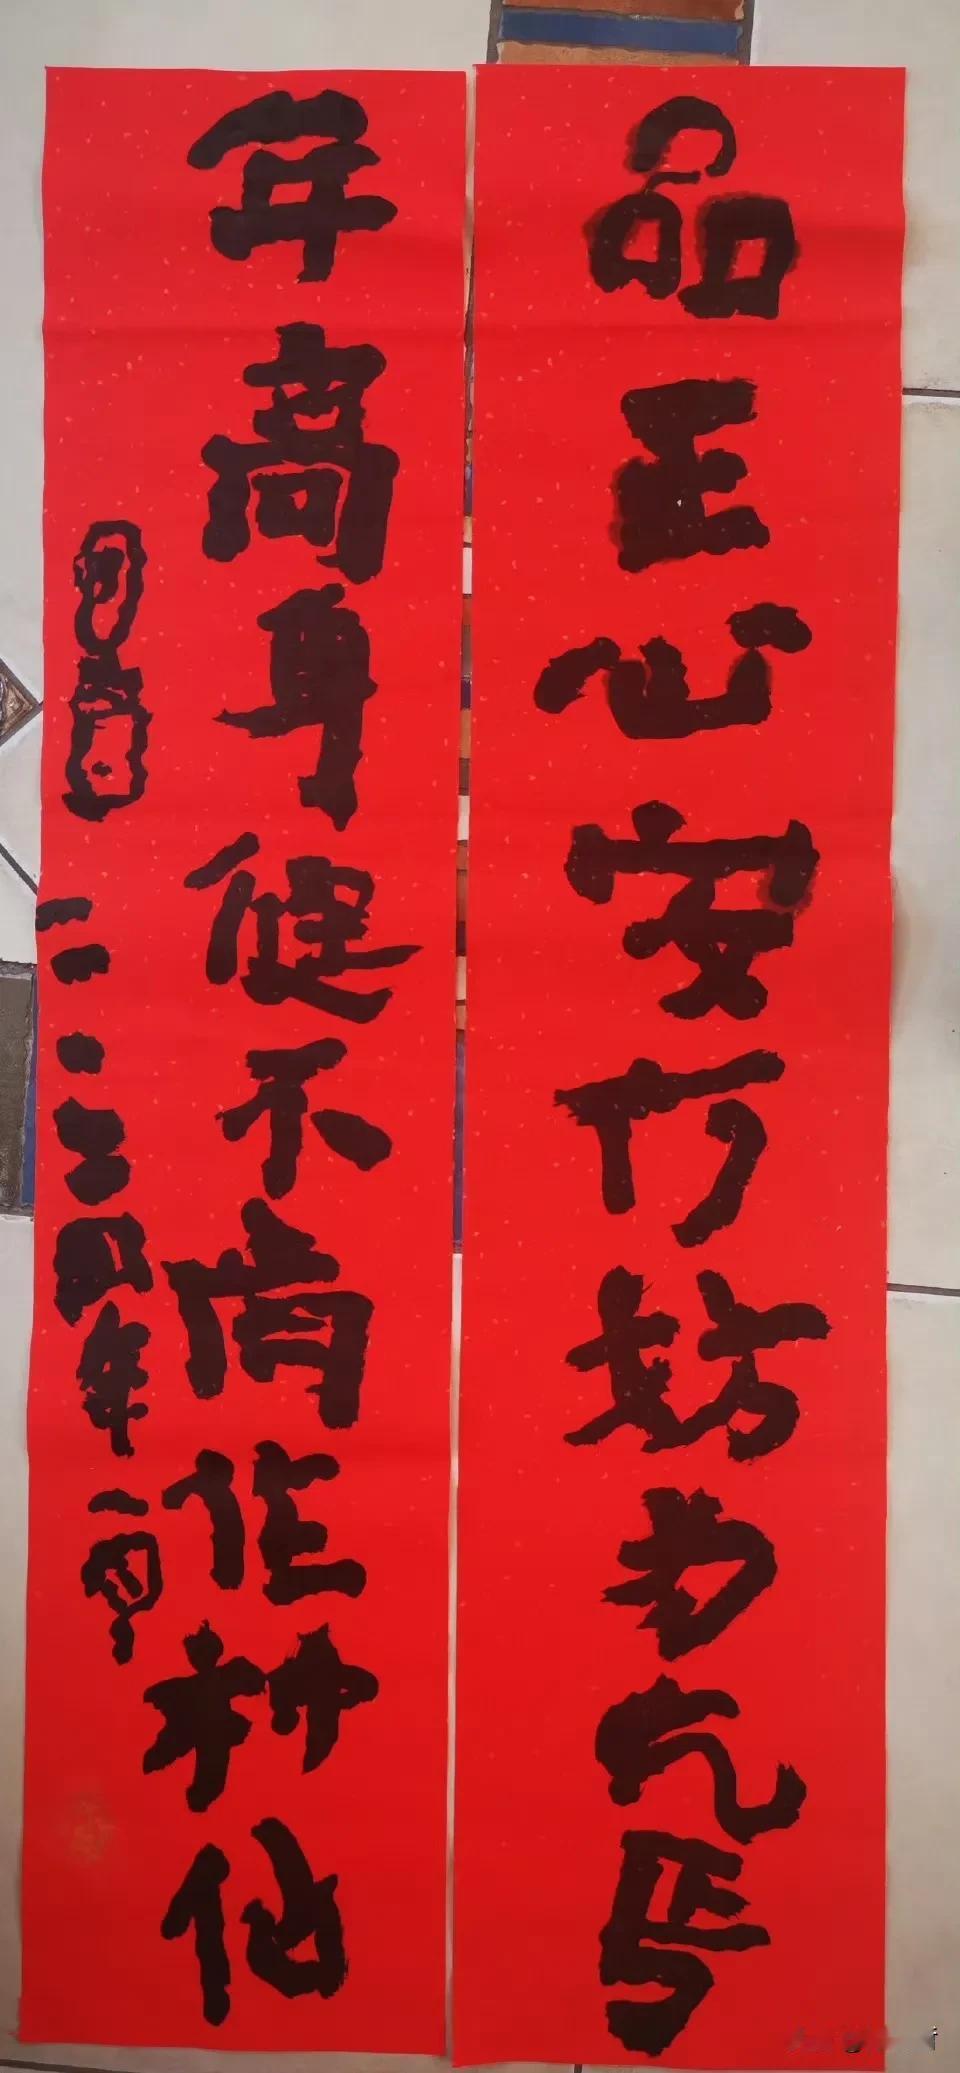 品正心安何妨为乞丐
年高身健不肯作神仙
二〇二四年一月